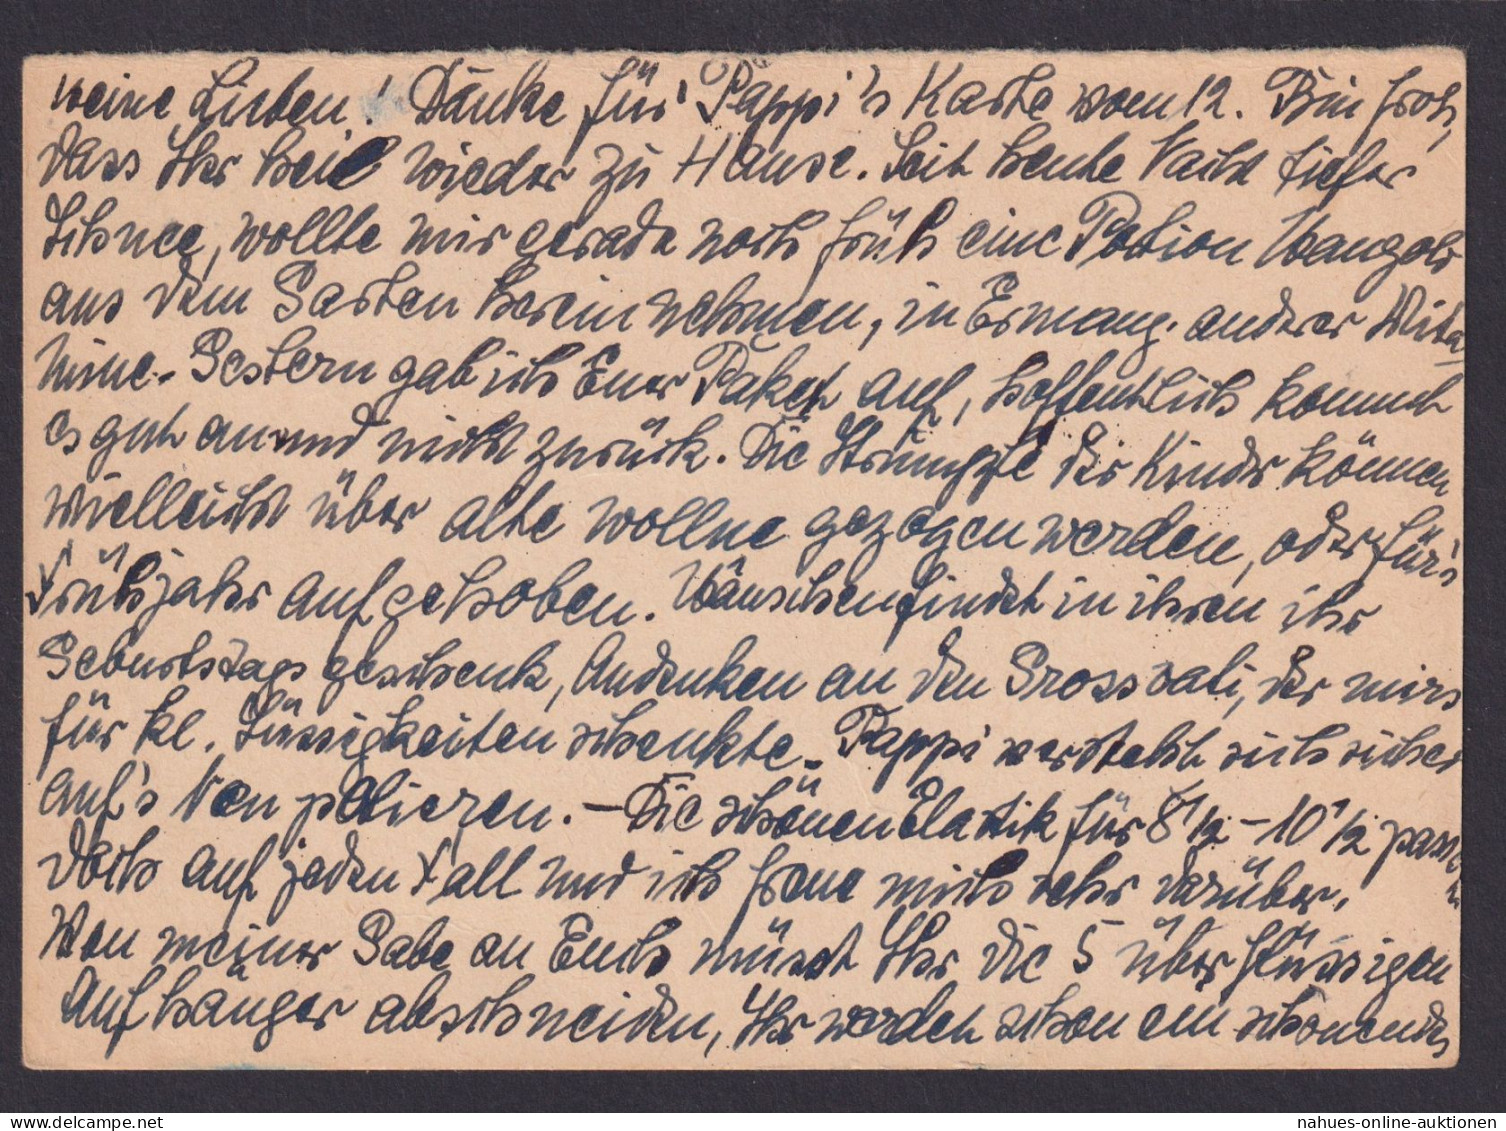 meine Lieben! Danke für Pappi's Karte vom 12. Bin froh,
dass Ihr heil wieder zu Hause. Seit heute Nacht tiefer
Schnee, wollte mir gerade noch früh eine Potion Wangols
aus dem Garten herein nehmen, in Ermang. anderer Vita-
mine. Gestern gab ich Euer Paket auf, hoffentlich kommt
es gut an und nicht zurück. Die Strümpfe der Kinder können
vielleicht über alte wollne gezogen werden, oder für's
Frühjahr aufgehoben. Wäuschen findet in ihren ihr
Geburtstagsgeschenk, Andenken an den Grossvati, der mirs
für kl. Süssigkeiten schenkte. Pappi versteht sich sicher
auf's Neu polieren. - Die schönen Elastik für 8 1/2 - 10 1/2 passen
doch auf jeden Fall und ich freue mich sehr darüber.
Von meiner Gabe an Euch müsst Ihr die 5 überflüssigen
Aufhänger abschneiden, Ihr werdet schon ein schonendes
nahues-online-auktionen